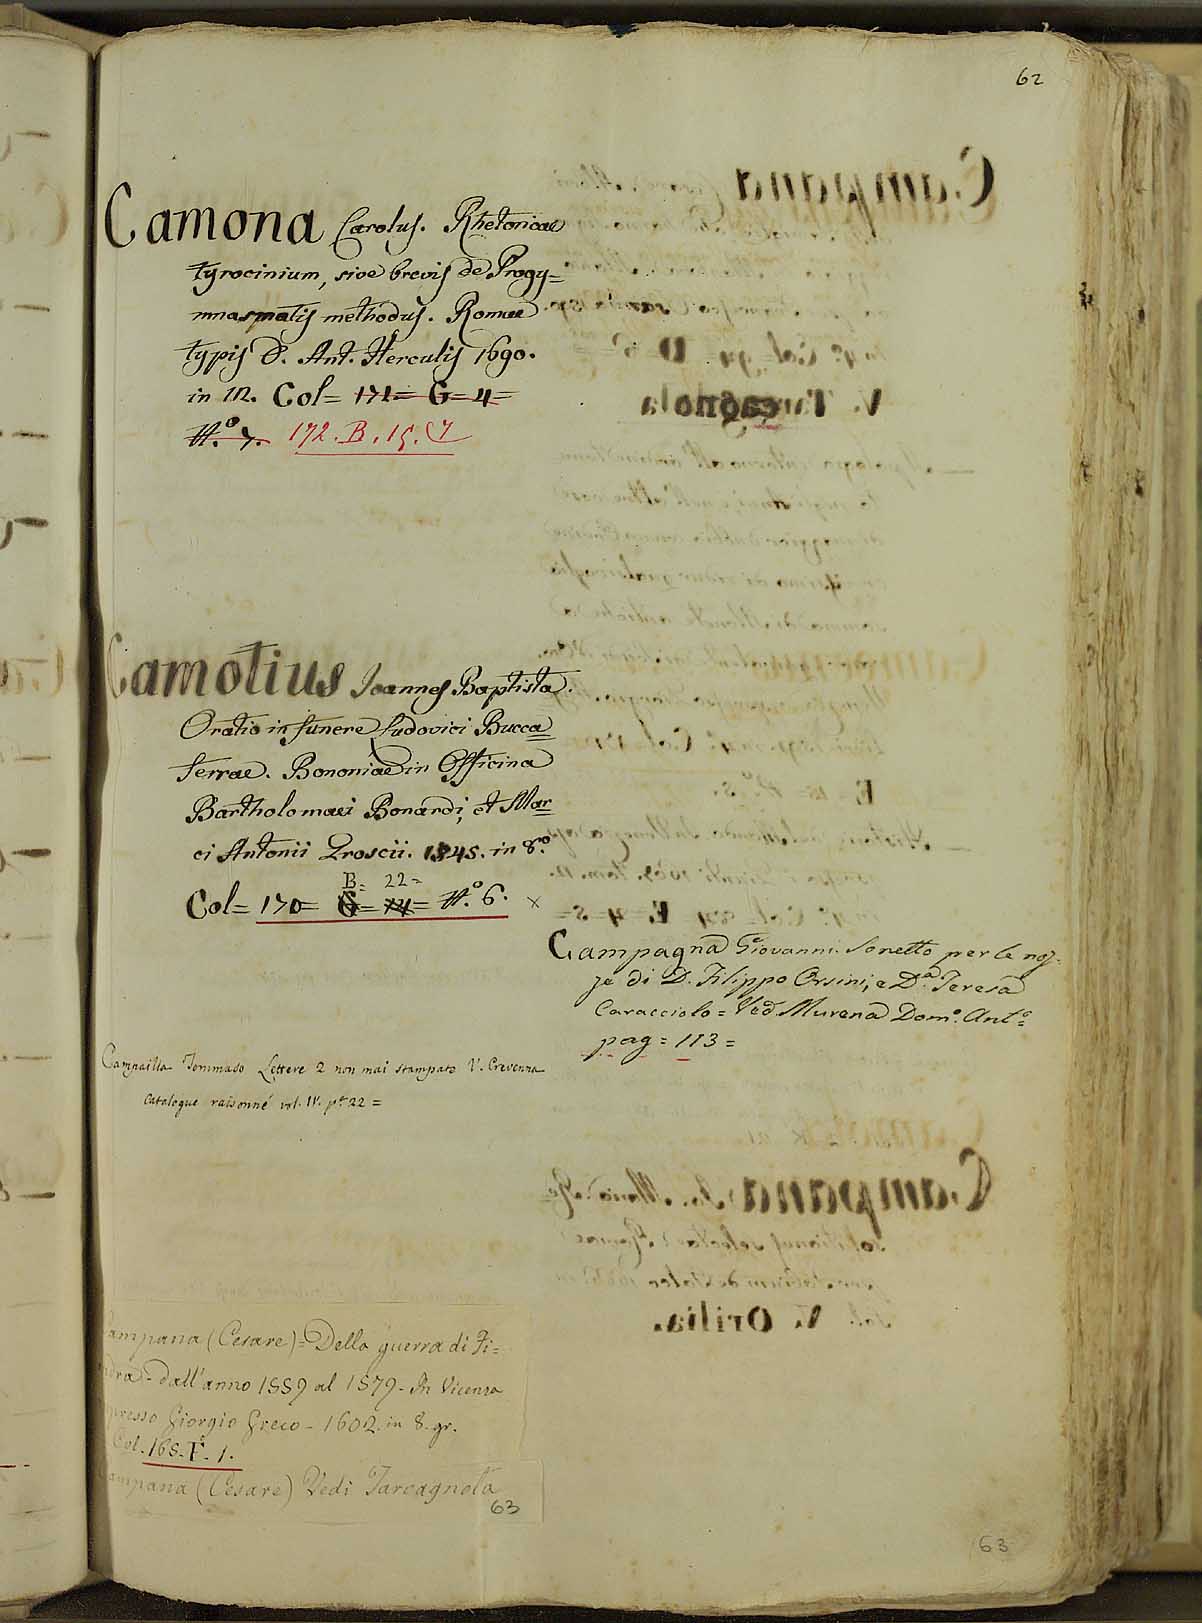 62
Camona Carolus. Rhetoricae
tyrocinium, sive brevis de Progy=
mnasmatis methodus. Romae
typis D. Ant. Herculis 1690.
in 12. Col= 171= G= 4=
N.º 7. 172. B. 15. (7
Camotius Joannes Baptista.
Oratio in funere Ludovici Bucca=
ferrae. Bononiae in Officina
Bartholomaei Bonardi, et Mar=
ci Antonii Groscii. 1545. in 8.º
B= 22=
Col= 170= G= 14= N.º 6. x
Campagna Giovanni. Sonetto per le noz-
ze di D. Filippo Orsini, e D.ª Teresa
Caracciolo = Ved Murena Dom.º Ant.º =
pag = 113 =
Campailla Tommaso Lettere 2 non mai stampate V. Crevenna
Catalogue raisonné vol. IV. pª 22 =
Campana (Cesare) = Della guerra di Fi=
andra - dall'anno 1559 al 1579 - In Vicenza
presso Giorgio Greco - 1602. in 8. gr.
Col. 165. F. 1.
Campana (Cesare) Vedi Tarcagnota
63
63